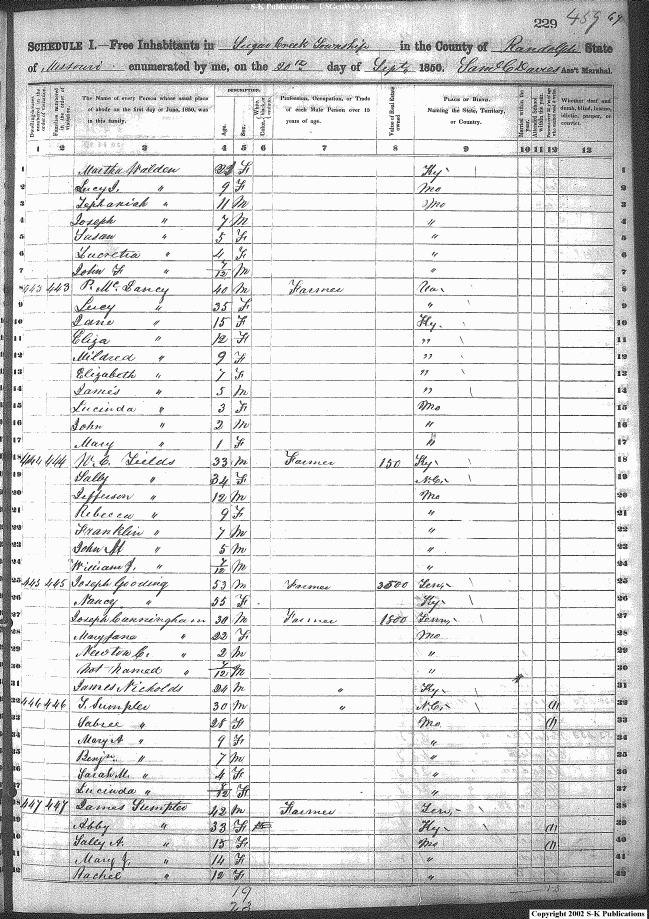 S-K Publications
229 459
SCHEDULE I.—Free Inhabitants in Sugar Creek Township in the County of Randolph State
of Missouri enumerated by me, on the 20th day of Sept, 1850. Saml C Davies Ass't Marshal.
Dwelling-houses numbered in the order of visitation. Families numbered in the order of visitation. The Name of every Person whose usual place of abode on the first day of June, 1850, was in this family. DESCRIPTION. Age. Sex. Color, Profession, Occupation, or Trade of each Male Person over 15 years of age. Value of Real Estate owned PLACE OF BIRTH. Naming the State, Territory, or Country. Married within the year. Attended School within the year. Whether deaf and dumb, blind, insane, idiotic, pauper, or convict.
1 2 3 4 5 6 7 8 9 10 11 12 13
1 Martha Walden F Ky 1
2 Lucy J. " 9 F Mo 2
3 Zephaniah " 11 M Mo 3
4 Joseph " 7 M " 4
5 Susan " 5 F " 5
6 Lucretia " 4 F " 6
7 John F " 7/12 M " 7
8 443 443 P. Mc Dancy 40 M Farmer Va. 8
9 Lucy " 35 F " 9
10 Jane " 15 F Ky. 10
11 Eliza " 12 F " 11
12 Mildred " 9 F " 12
13 Elizabeth " 7 F " 13
14 James " 5 M " 14
15 Lucinda " 3 F Mo 15
16 John " 2 M " 16
17 Mary " 1 F " 17
18 444 444 W. C. Fields 33 M Farmer 150 Ky 18
19 Sally " 34 F N.C. 19
20 Jefferson " 12 M Mo 20
21 Rebecca " 9 F " 21
22 Franklin " 7 M " 22
23 John M " 5 M " 23
24 William J. " 7/12 M " 24
25 445 445 Joseph Gooding 53 M Farmer 3500 Tenn 25
26 Nancy " 55 F Ky 26
27 Joseph Cunningham 30 M Farmer 1500 Tenn 27
28 Mary Jane " 22 F Mo 28
29 Newton C. " 2 M " 29
30 Not Named " /12 M " 30
31 James Nicholds 24 M " Ky 31
32 446 446 T. Sumpter 30 M " N.C. (1) 32
33 Sabree " 28 F Mo. (1) 33
34 Mary A " 9 F " 34
35 Benj. " 7 M " 35
36 Sarah M. " 4 F " 36
37 Lucinda " /12 F " 37
38 447 447 James Sumpter 42 M Farmer Tenn 38
39 Abby " 33 F Ky (1) 39
40 Sally A. " 15 F Mo (1) 40
41 Mary J. " 14 F " 41
42 Rachel " 12 F " 42
19
23
Copyright 2002 S-K Publications